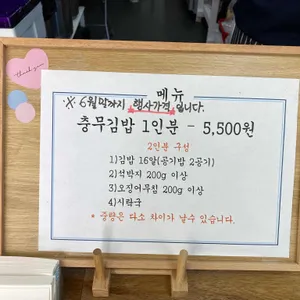 thank you
메뉴
※ 6월말까지 행사가격 입니다.
충무김밥 1인분 - 5,500원
2인분 구성
1)김밥 16알(공기밥 2공기)
2)석박지 200g 이상
3)오징어무침 200g 이상
4)시락국
* 중량은 다소 차이가 날수 있습니다.